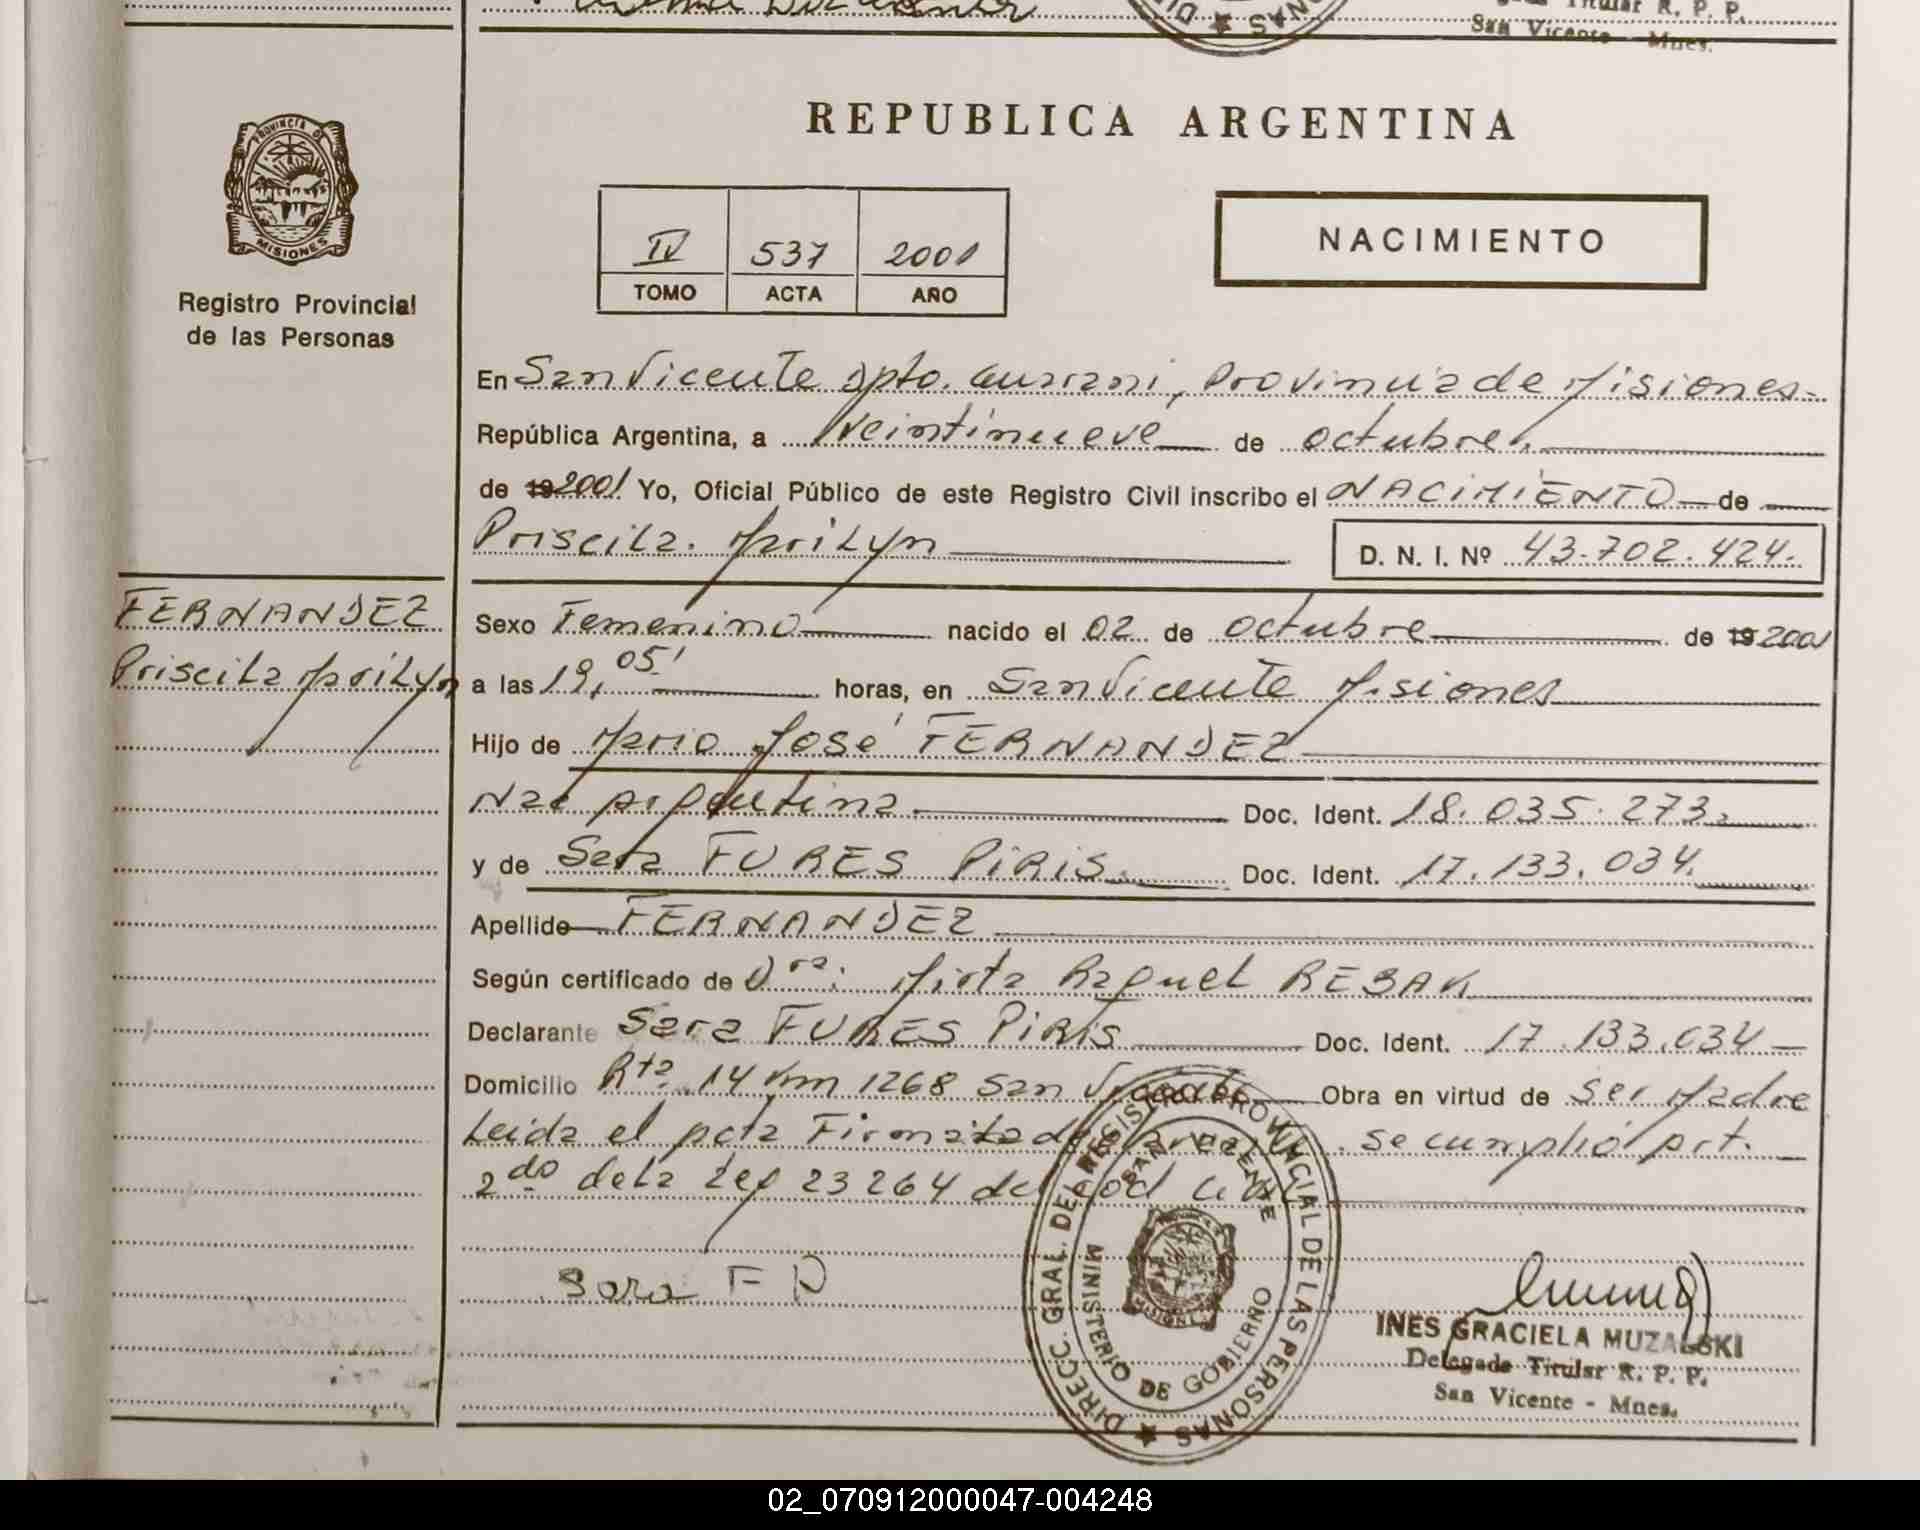 Titular R. P. P.
San Vicente - Mnes.
PROVINCIA DE
MISIONES
Registro Provincial
de las Personas
REPUBLICA ARGENTINA
IV 537 2001
TOMO ACTA AÑO
NACIMIENTO
En San Vicente Dpto. Guarani, Provincia de Misiones
República Argentina, a Veintinueve de octubre
de 19 2001 Yo, Oficial Público de este Registro Civil inscribo el NACIMIENTO de
Priscila Marilyn
D. N. I. Nº 43.702.424.
FERNANDEZ
Priscila Marilyn
Sexo Femenino nacido el 02 de octubre de 19 2001
a las 19,05' horas, en San Vicente Misiones
Hijo de Mario José FERNANDEZ
Nac Argentina Doc. Ident. 18.035.273
y de Sara FURES PIRIS Doc. Ident. 17.133.034.
Apellido FERNANDEZ
Según certificado de Dra. Mirta Raquel REBAK
Declarante Sara FURES PIRIS Doc. Ident. 17.133.034
Domicilio Rta 14 Km 1268 San Vicente Obra en virtud de ser Madre
Leida el Acta Firma la declarante. se cumplió Art.
2do de la Ley 23264 del Cod Civil
Sara F P
DIRECC. GRAL. DEL REGISTRO PROVINCIAL DE LAS PERSONAS
SAN VICENTE
MINISTERIO DE GOBIERNO
MISIONES
INES GRACIELA MUZALSKI
Delegada Titular R. P. P.
San Vicente - Mnes.
02_070912000047-004248